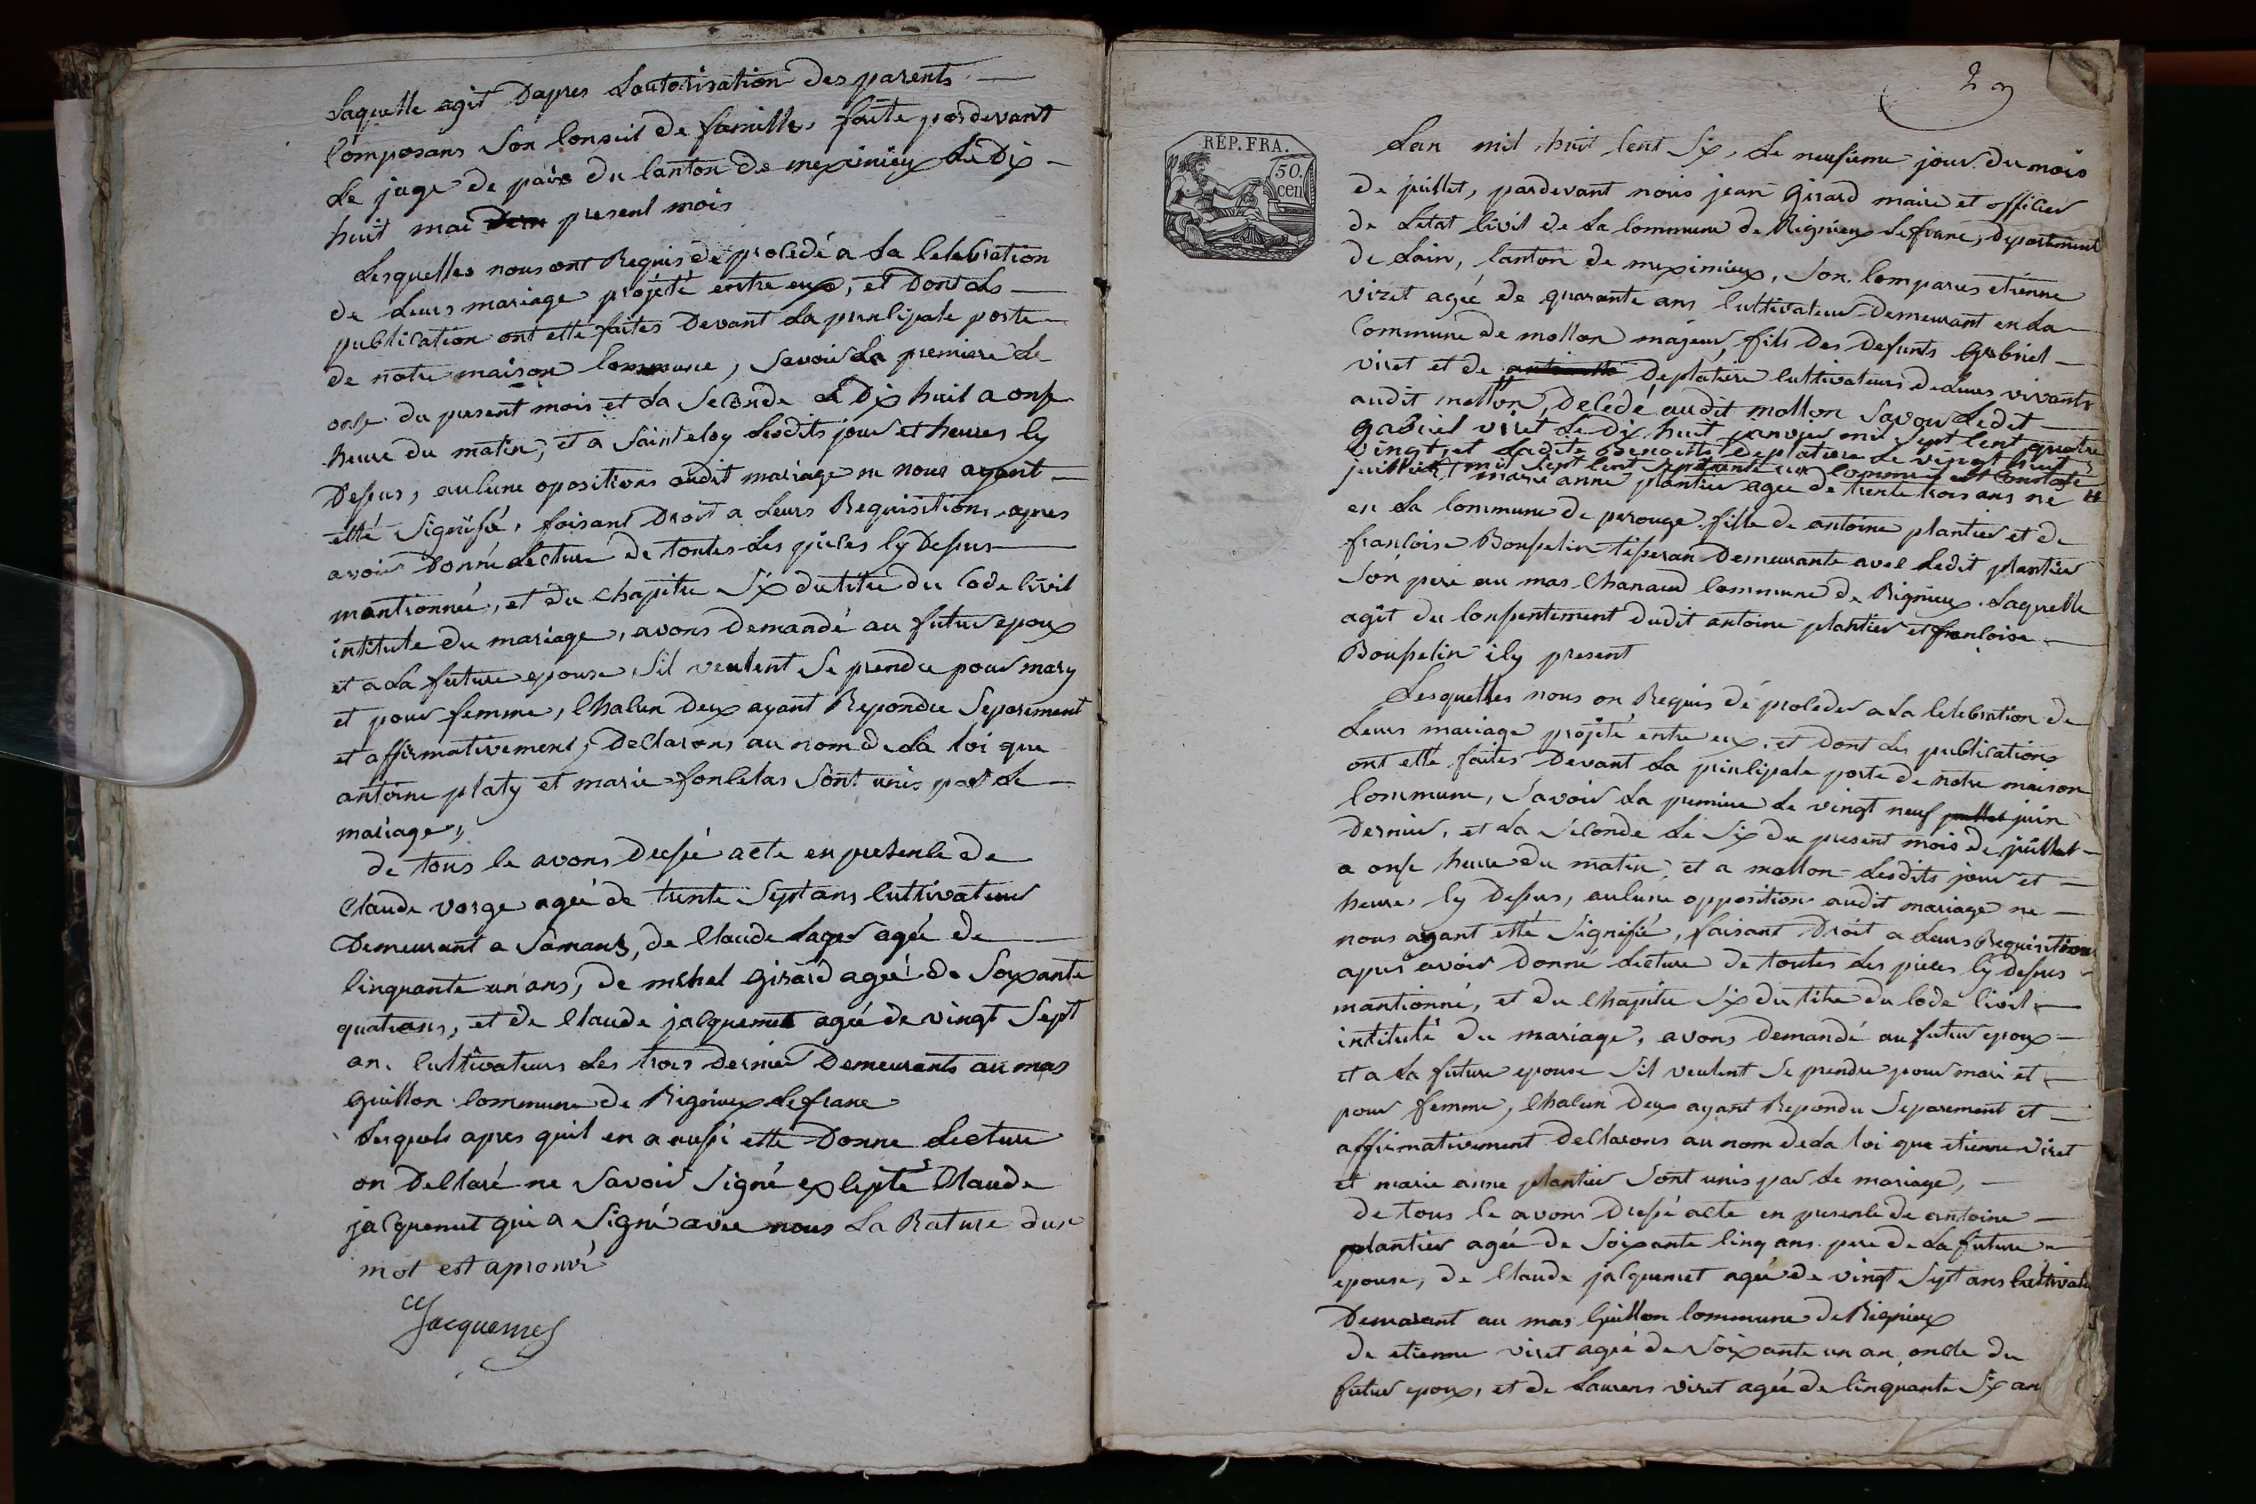 Laquelle agit Dapres Lautorisation des parents
Composans Son Conseil de famille, faite pardevant
Le juge de paix du Canton de meximieux Le Dix
huit mai present mois
Lesquelles nous ont Requis de procedé a La Celebration
de Leurs mariage projété entre eux, et Dont Les
publication ont etté faites Devant La principale porte
de notre maison Commune, Savoir La premiere Le
onze du present mois et La Seconde Le Dix huit a onze
heure du matin, et a Saint eloy Lesdits jour et heures Cy
Dessus, aucune opositions audit mariage ne nous ayant
etté Signifié, faisant Droit a Leurs Requisitions, apres
avoir Donné Lecture de toutes Les pieces Cy Dessus
mantionnée, et du Chapitre Six du titre du Code Civil
intitule du mariage, avons Demandé au futur epoux
et a La future epouse, Sil veulent Se prendre pour mary
et pour femme, Chacun Deux ayant Repondu Separement
et affirmativement, Declarons au nom de La loi que
antoine platy et marie foncelas Sont unis par Le
mariage,
de tous Ce avons Dressé acte en presence de
Claude vorge ageé de trente Sept ans Cultivateur
Demeurant a Samans, de Claude Lager ageé de
Cinquante un ans, de michel Girard ageé de Soxante
quatre ans, et de Claude jacquemet ageé de vingt Sept
an. Cultivateurs Les trois dernier Demeurants au mas
Guillon Commune de Rignieux Lefranc
Lesquels apres quil en a aussi etté Donne Lecture
on Declaré ne Savoir Signé excepté Claude
jacquemet qui a Signé avec nous La Rature dun
mot est aprouvé
Jacquemet
RÉP. FRA.
50.
cen
Lan mil huit Cent Six, Le neufieme jour du mois
de juillet, pardevant nous jean Girard maire et officier
de Létat Civil de La Commune de Rignieux Lefranc, Departement
de Lain, Canton de meximieux, Son Comparus etienne
viret ageé de quarante ans Cultivateur Demeurant en La
Commune de mollon majeur, fils Des Defunts Gabriel
viret et de Deplatiere Cultivateurs de Leurs vivants
audit mollon, Decedé audit mollon Savoir Ledit
gabriel viret Le Dix huit janvier mil Sept Cent quatre
vingt, et Ladite Benoitte Deplatiere Le vingt huit
juillet mil Sept Cent Septante un Comme est Constaté
marie anne plantier ageé de trente trois ans né
en La Commune de perouge, fille de antoine plantier et de
francoise Bousselin Demeurante avec Ledit plantier
Son pere au mas Chanaud Commune de Rignieux. Laquelle
agit du Consentement dudit antoine plantier et francoise
Bousselin icy present
Lesquelles nous on Requis dé proceder a La Celebration de
Leurs mariage projété entre eux, et Dont Les publications
ont etté faites Devant La principale porte de notre maison
Commune, Savoir La premiere Le vingt neuf juin
Dernier, et La Seconde Le Six du present mois de juillet
a onze heure du matin, et a mollon Lesdits jour et
heure, Cy Dessus, aucune opposition audit mariage ne
nous ayant etté Signifié, faisant Droit a Leurs Requisition
apres avoir Donné Lecture de toutes Les pieces Cy Dessus
mantionné, et du Chapitre Six du titre du Code Civil
intitulé du mariage, avons Demandé au futur epoux
et a La future epouse Sil veulent Se prendre pour mari et
pour femme, Chacun Deux ayant Repondu Separement et
affirmativement Declarons au nom de La loi que etienne viret
et marie anne plantier Sont unis par Le mariage,
de tous Ce avons Dressé acte en presence de antoine
plantier ageé de Soixante Cinq ans pere de La future
epouse, de Claude jacquemet ageé de vingt Sept ans Cultivate
Demeurant au mas Guillon Commune de Rignieux
de etienne viret ageé de Soixante un an, oncle du
futur epoux, et de Laurens viret ageé de Cinquante Six an